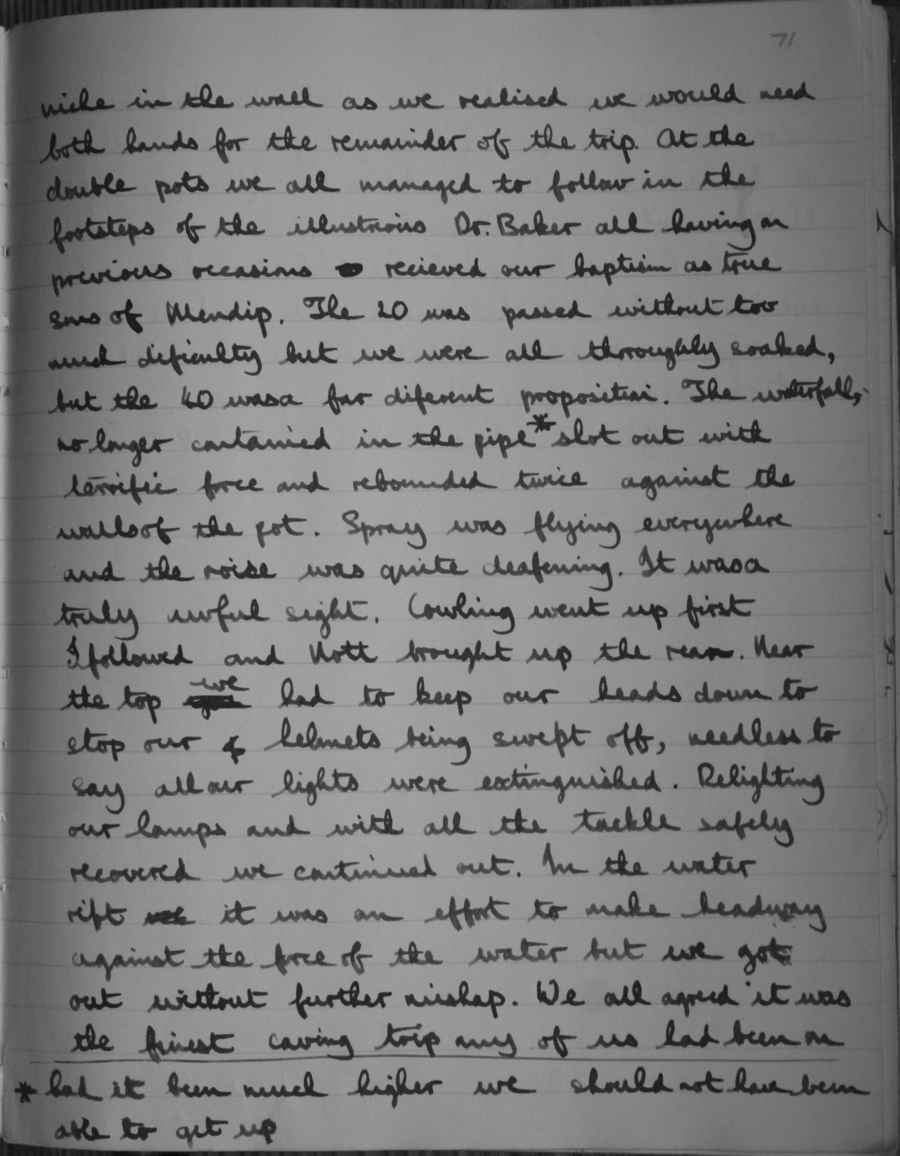 71
niche in the wall as we realised we would need
both hands for the remainder of the trip. At the
double pots we all managed to follow in the
footsteps of the illustrious Dr. Baker all having on
previous occasions recieved our baptism as true
sons of Mendip. The 20 was passed without too
much dificulty but we were all thoroughly soaked,
but the 40 was a far diferent proposition. The waterfall,
no longer contained in the pipe * shot out with
terrific force and rebounded twice against the
walls of the pot. Spray was flying everywhere
and the noise was quite deafening. It was a
truly awful sight. Cowling went up first
I followed and Nott brought up the rear. Near
the top we had to keep our heads down to
stop our helmets being swept off, needless to
say all our lights were extinguished. Relighting
our lamps and with all the tackle safely
recovered we continued out. In the water
rift it was an effort to make headway
against the force of the water but we got
out without further mishap. We all agreed it was
the finest caving trip any of us had been on
* had it been much higher we should not have been
able to get up